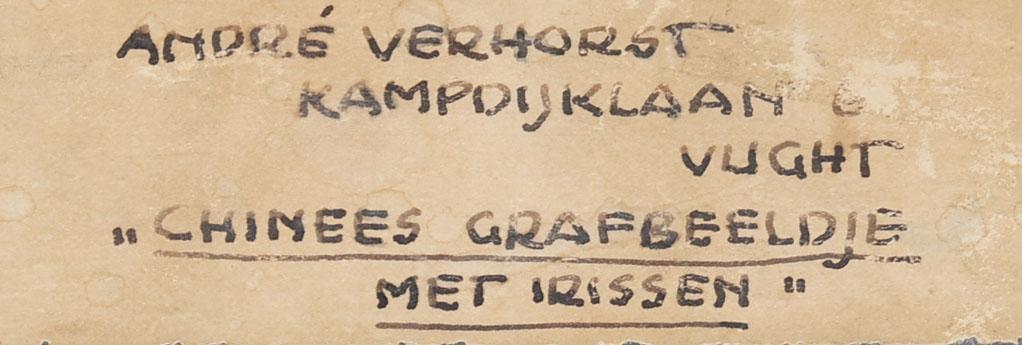 ANDRÉ VERHORST
KAMPDIJKLAAN
VUGHT
„CHINEES GRAFBEELDJE
MET IRISSEN"